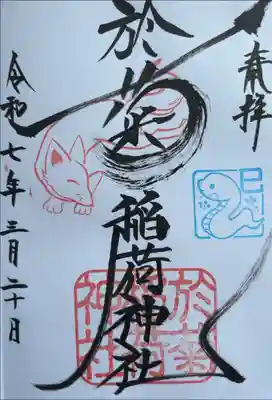 奉拝
於菊稲荷神社
令和七年三月二十日
巳
於菊稲荷神社